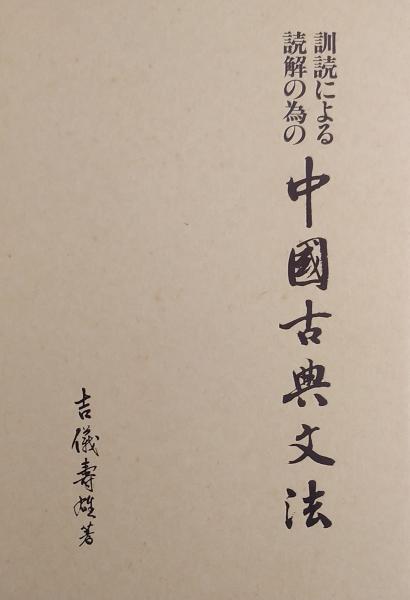 訓読による
読解の為の
中國古典文法
吉儀壽雄著